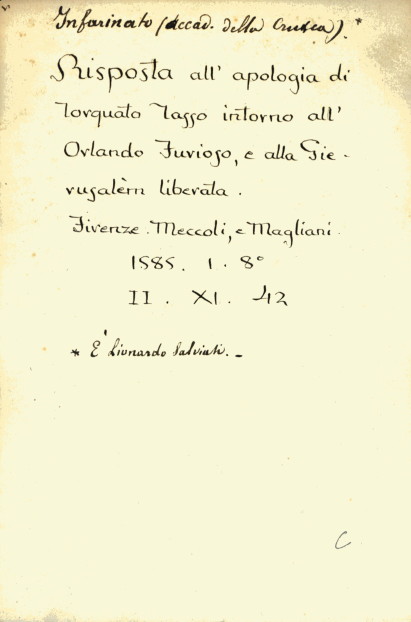 Infarinato (Accad. della Crusca). *
Risposta all' apologia di
Torquato Tasso intorno all'
Orlando Furioso, e alla Gie-
rusalèm liberata.
Firenze. Meccoli, e Magliani.
1585. 1. 8°
II. XI. 42
* È Lionardo Salviati. –
C